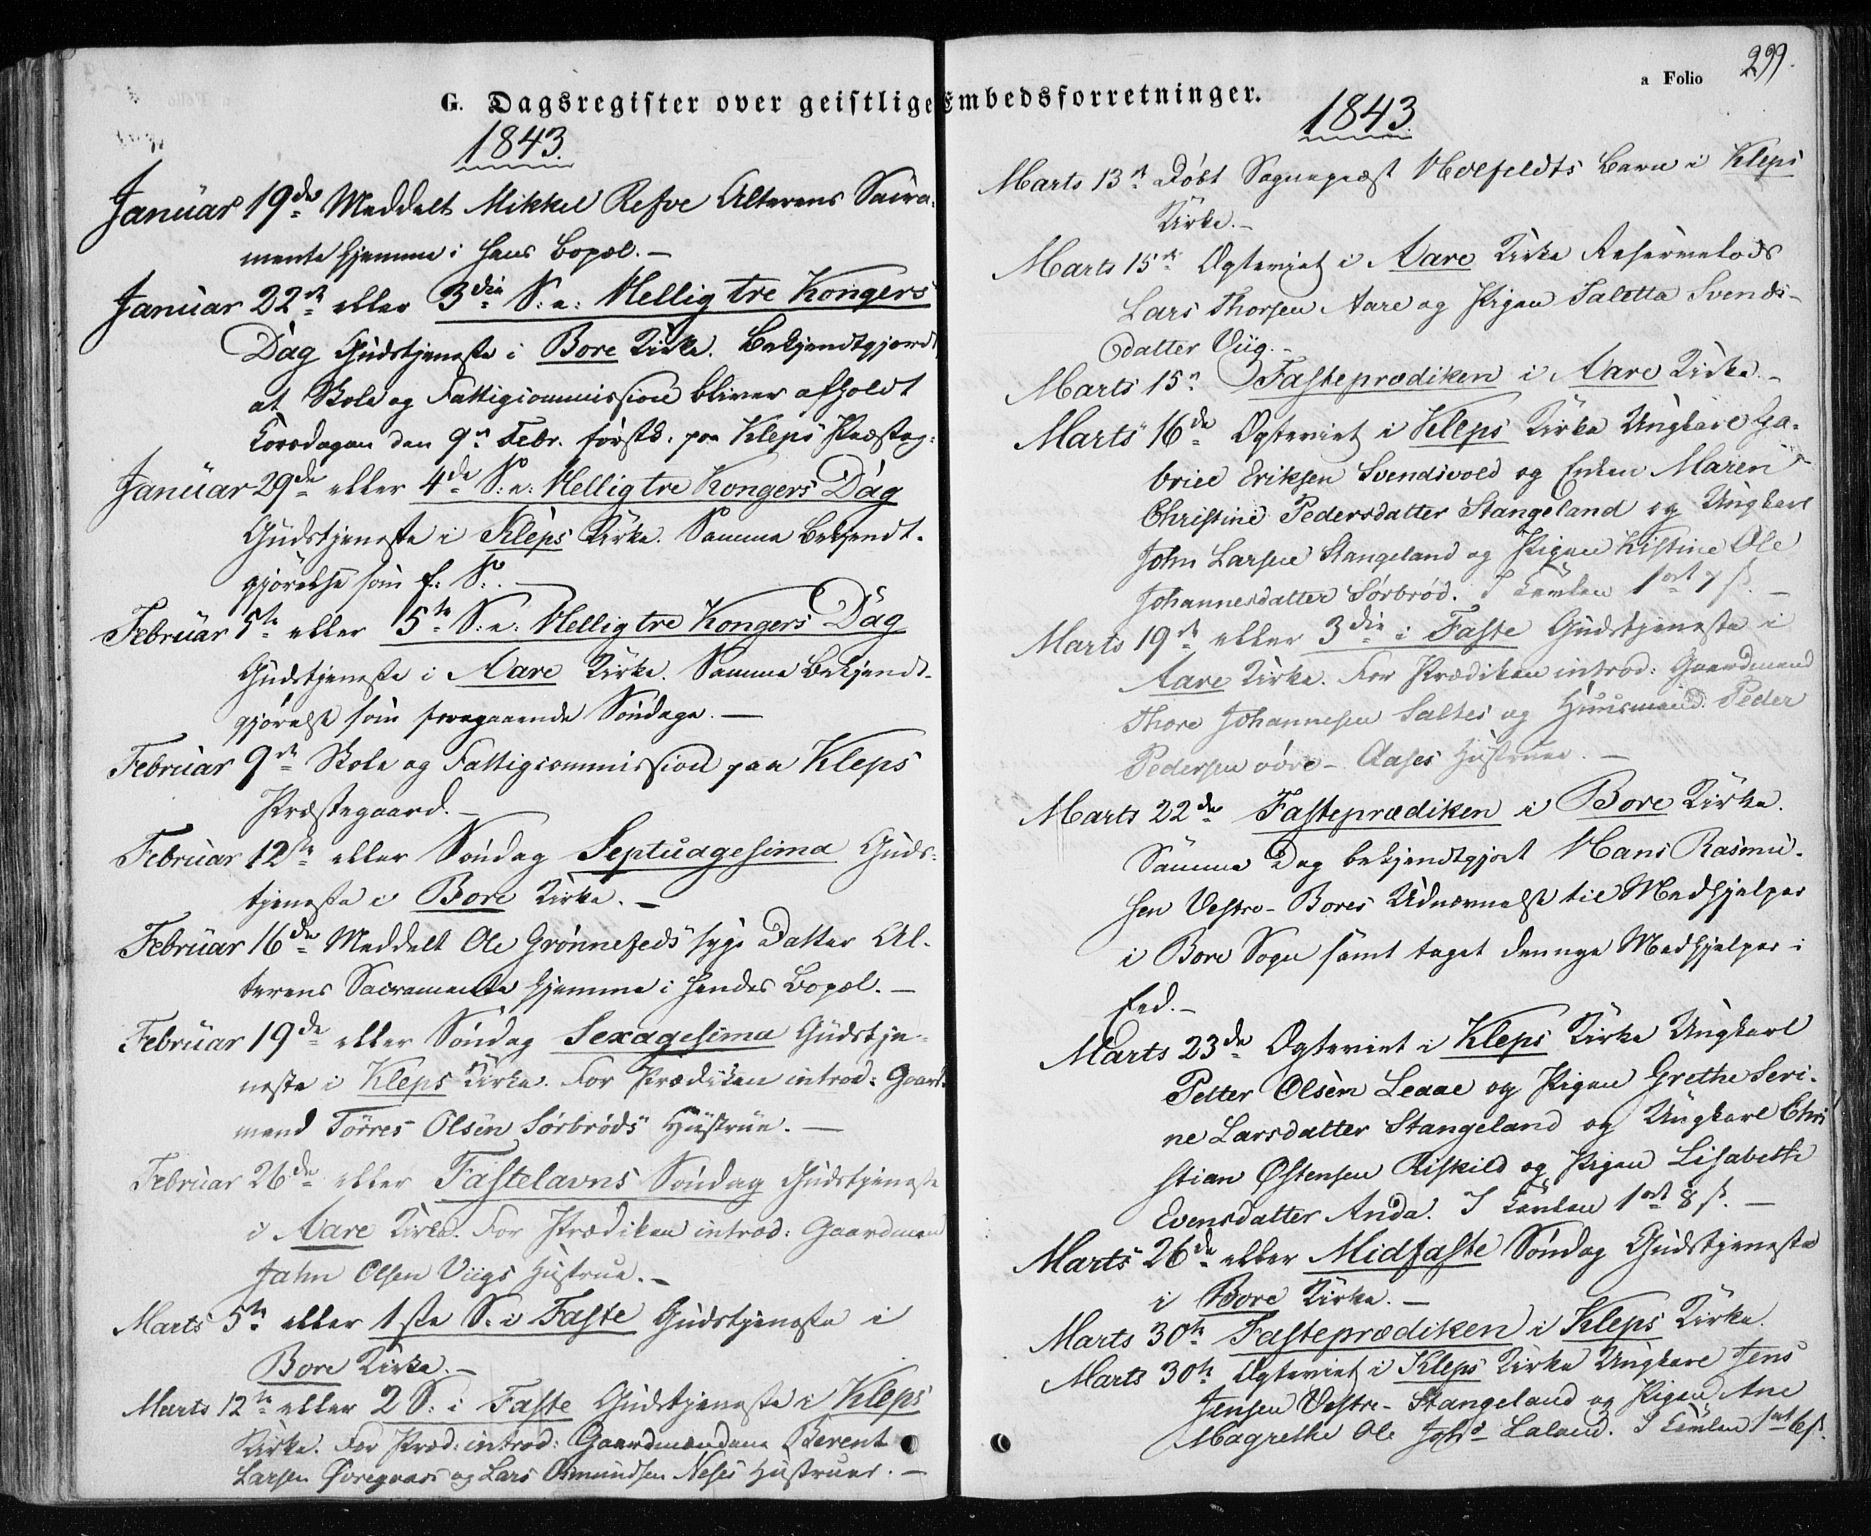 G. Dagsregister over geistlige Embedsforretninger.
a Folio 299.
1843.
Januar 19de Meddelt Mikkel Refve Alterens Sacra-
mente hjemme i hans Bopæl. —
Januar 22de eller 3die S. e. Hellig tre Kongers
Dag Gudstjeneste i Bore Kirke. Bekjendtgjordt
at Skole og Fattigcommission bliver afholdt
Torsdagen den 9de Febr. førstk. paa Kleps Præsteg:
Januar 29de eller 4de S. e. Hellig tre Kongers Dag
Gudstjeneste i Kleps Kirke. Samme Bekjendt-
gjørelse som f. S. —
Februar 5te eller 5te S. e. Hellig tre Kongers Dag
Gudstjeneste i Aare Kirke. Samme Bekjendt-
gjørelse som foregaaende Søndage. —
Februar 9de Skole og Fattigcommission paa Kleps
Præstegaard. —
Februar 12te eller Søndag Septuagesima Guds-
tjeneste i Bore Kirke. —
Februar 16de Meddelt Ole Grønnefeds syge Datter Al-
terens Sacramente hjemme i hendes Bopæl. —
Februar 19de eller Søndag Sexagesima Gudstje-
neste i Kleps Kirke. For Prædiken introd: Gaard-
mand Tørres Olsen Sørbrøds Hustrue. —
Februar 26de eller Fastelavns Søndag Gudstjeneste
i Aare Kirke. For Prædiken introd: Gaardmand
Jahn Olsen Viigs Hustrue. —
Marts 5te eller 1ste S. i Faste Gudstjeneste i
Bore Kirke. —
Marts 12te eller 2 S. i Faste Gudstjeneste i Kleps
Kirke. For Præd: introd: Gaardmændene Berent
Larsen Øvregaars og Lars Osmundsen Neses Hustruer. —
1843.
Marts 13de Døbt Sognepræst Holfeldts Barn i Kleps
Kirke. —
Marts 15de Ægteviet i Aare Kirke
Lars Thorsen Aare og Pigen Taletta Svends-
datter Viig. —
Marts 15de Fasteprædiken i Aare Kirke. —
Marts 16de Ægteviet i Kleps Kirke Ungkarl Ga-
briel Eriksen Svendsvold og Enken Maren
Christine Pedersdatter Stangeland og Ungkarl
John Larsen Stangeland og Pigen Kistine Ole
Johannesdatter Sørbrød. I Tavlen 1 ort 7 s. —
Marts 19de eller 3die i Faste Gudstjeneste i
Aare Kirke. For Prædiken introd: Gaardmand
Thore Johannesen Saltes og Huusmand Peder
Pedersen øvre- Aases Hustruer. —
Marts 22de Fasteprædiken i Bore Kirke.
Samme Dag bekjendtgjort Hans Rasmu-
sen Vestre- Bores Udnævnelse til Medhjelper
i Bore Sogn samt taget den nye Medhjelper i
Eed. —
Marts 23de Ægteviet i Kleps Kirke Ungkarl
Petter Olsen Leaae og Pigen Grethe Seri-
ne Larsdatter Stangeland og Ungkarl Chri
stian Østensen Riskild og Pigen Lisabeth
Evensdatter Anda. I Tavlen 1 ort 8 s. —
Marts 26de eller Midfaste Søndag Gudstjeneste
i Bore Kirke. —
Marts 30te Fasteprædiken i Kleps Kirke.
Marts 30te Ægteviet i Kleps Kirke Ungkarl Jens
Jensen Vestre- Stangeland og Pigen Ane
Magrethe Ole Johs Laland. I Tavlen 1 ort 6 s.